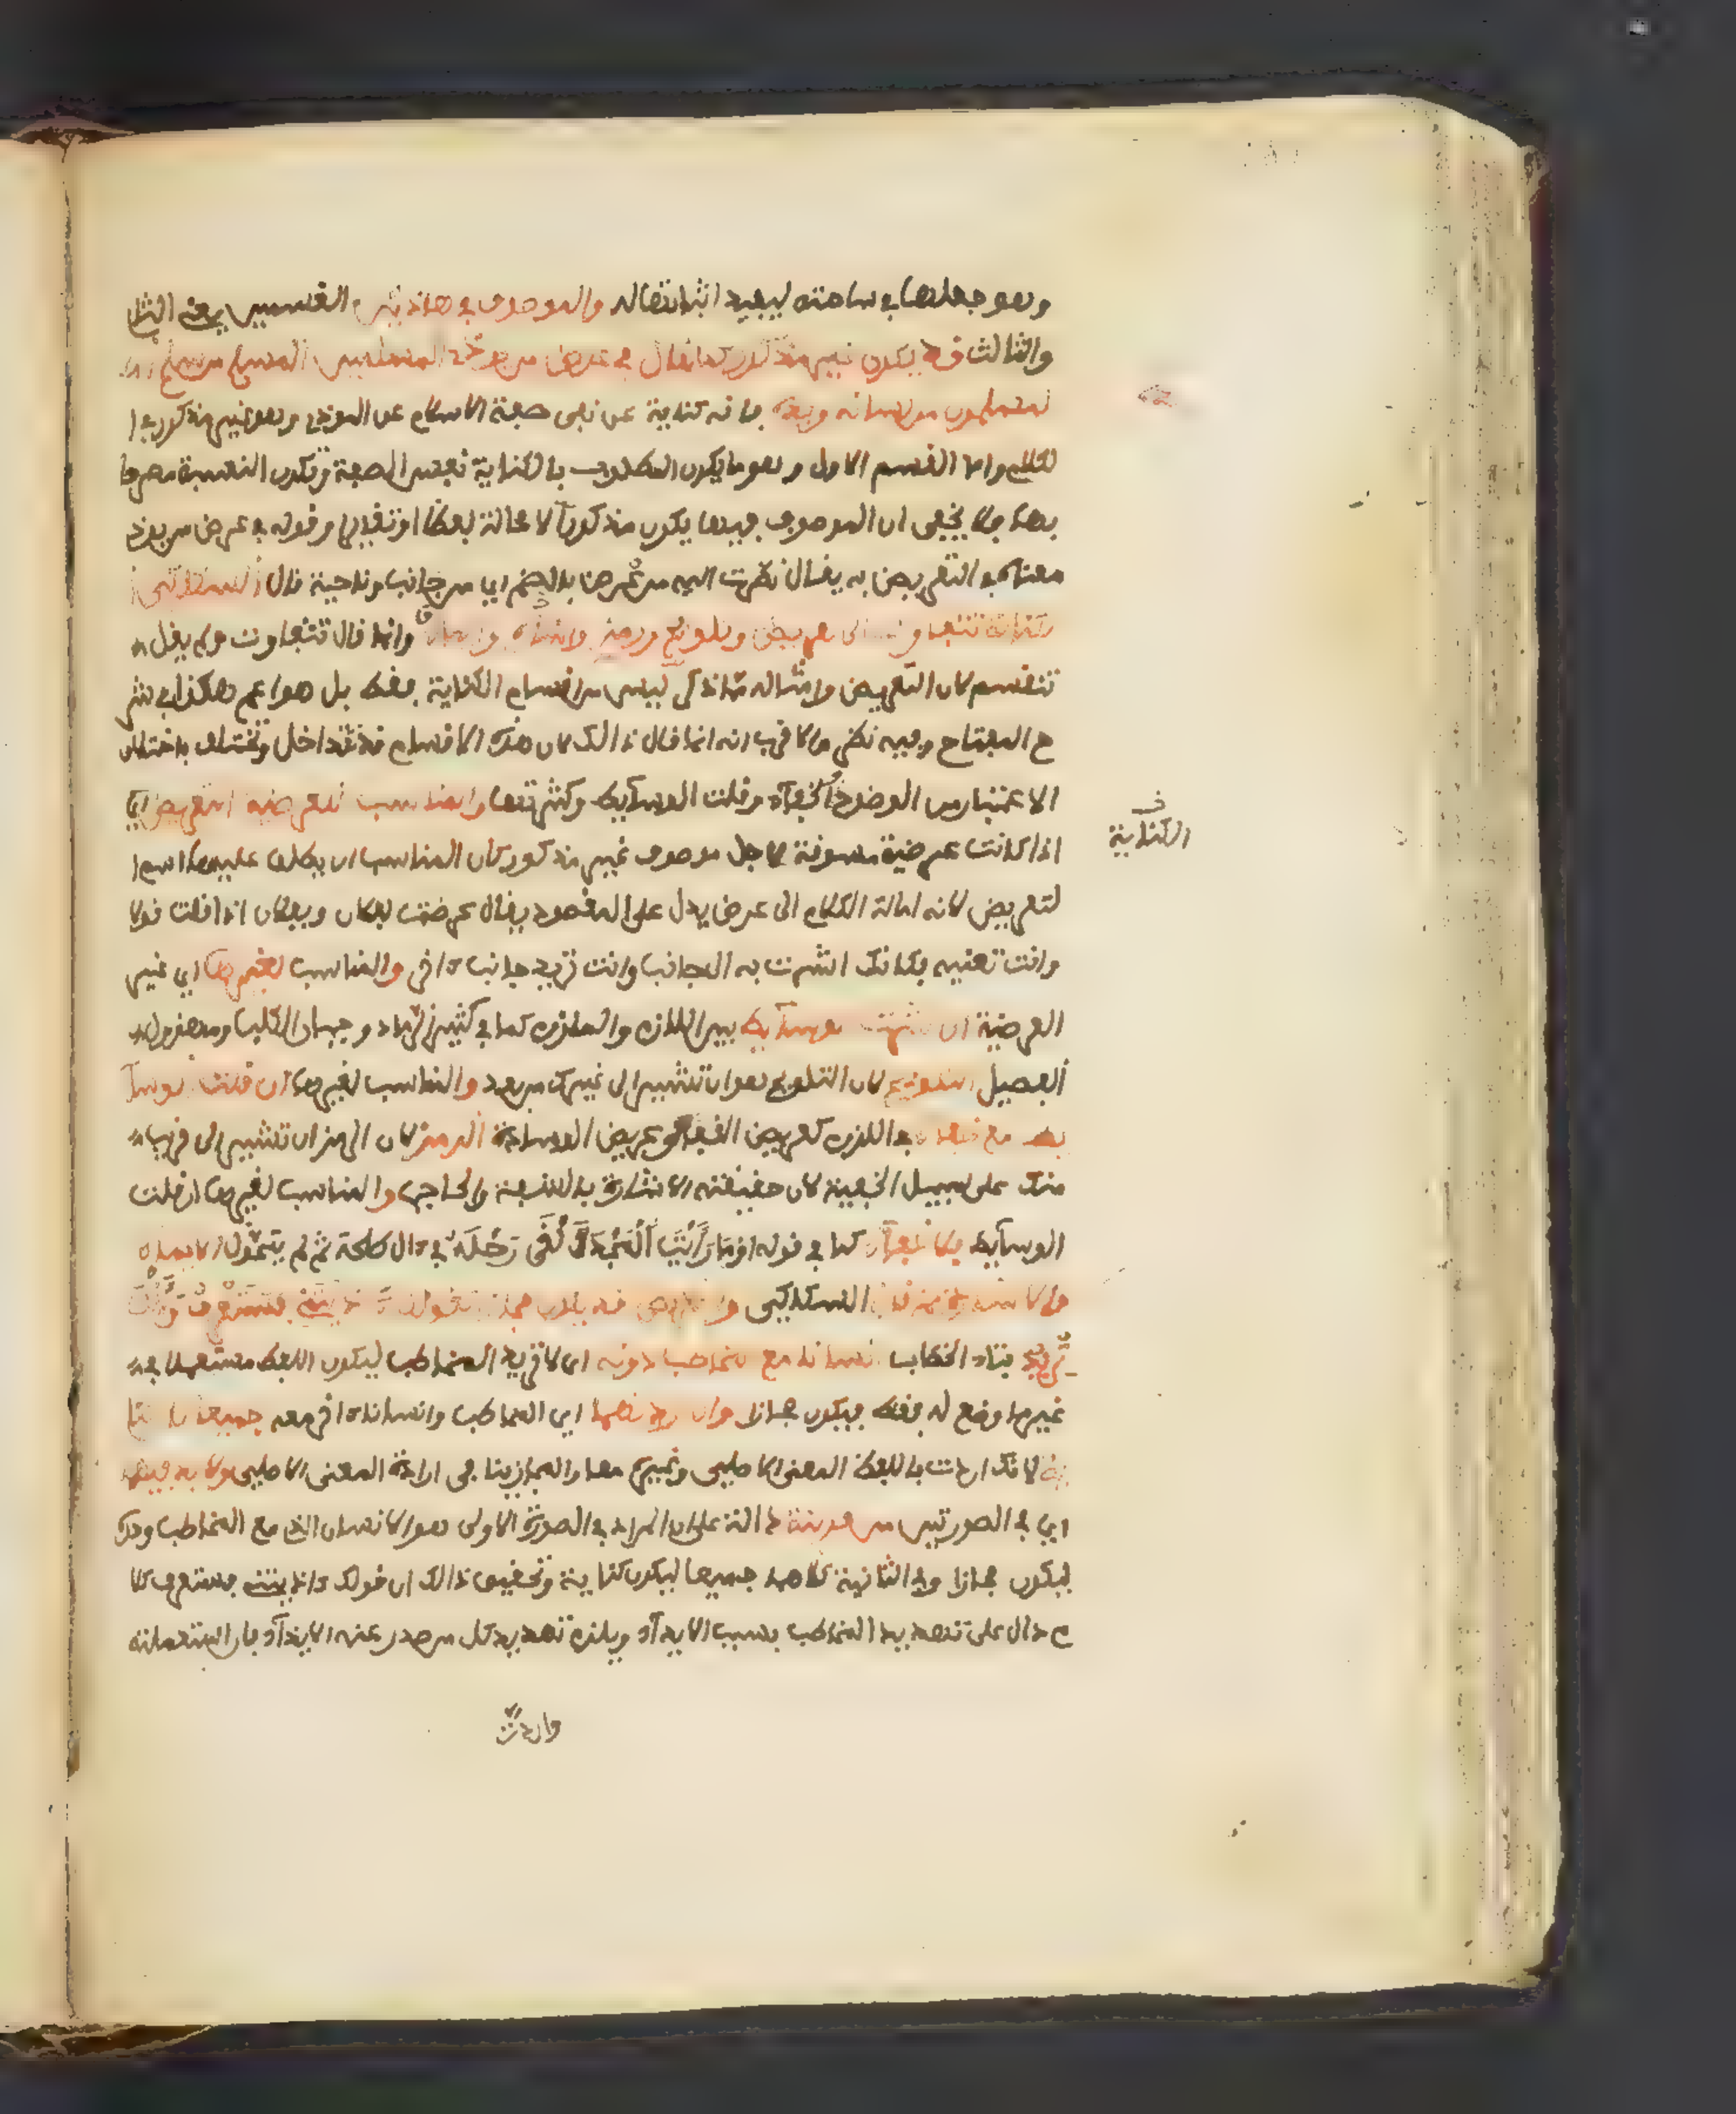 وهو جعلها في ساحته ليفيد اثباتها له والموصوف في هاذين القسمين يعني الثاني
والثالث قد يكون غير مذكور كما يقال في عرض من يوذي المسلمين المسلم من سلم ا
لمسلمون من لسانه ويده فانه كناية عن نفي صفة الاسلام عن الموذي وهو غير مذكور في ا
لكلام واما القسم الاول وهو ما يكون المطلوب بالكناية نفس الصفة وتكون النسبة مصرحا
بها فلا يخفى ان الموصوف فيها يكون مذكورا لا محالة لفظا او تقديرا وقوله في عرض من يوذي
معناه في التعريض به يقال نظرت اليه من عرض بالضم اي من جانب وناحية قال السكاكي ا
لكناية تتفاوت الى تعريض وتلويح ورمز وايماء واشارة وانما قال تتفاوت ولم يقل
تنقسم لان التعريض وامثاله مما ذكر ليس من اقسام الكناية فقط بل هو اعم هكذا في شر
ح المفتاح وفيه نظر والاقرب انه انما قال ذالك لان هذه الاقسام قد تتداخل وتختلف باختلاف
الاعتبار من الوضوح والخفاء وقلت الوسايط وكثرتها والمناسب للعرضية التعريض اي
اذا كانت عرضية مسوقة لاجل موصوف غير مذكور كان المناسب ان يطلق عليها اسم ا
لتعريض لانه امالة الكلام الى عرض يدل على المقصود يقال عرضت لفلان وبفلان اذا قلت قولا
وانت تعنيه فكانك اشرت به الى جانب وانت تريد جانبا ءاخر والمناسب لغيرها اي غير
العرضية ان كثرت الوسايط بين اللازم والملزوم كما في كثير الرماد وجبان الكلب ومهزول
الفصيل التلويح لان التلويح هو ان تشير الى غيرك من بعد والمناسب لغيرها ان قلت الوسا
يط مع خفاء في اللزوم كعريض القفا وعريض الوسادة الرمز لان الرمز ان تشير الى قريب
منك على سبيل الخفية لان حقيقته الاشارة بالشفة والحاجب والمناسب لغيرها ان قلت
الوسايط بلا خفاء كما في قوله اوما رايت المجد القى رحله في ءال طلحة ثم لم يتحول الايماء
والاشارة ثم قال السكاكي والتعريض قد يكون مجازا كقولك ءاذيتني فستعرف وانت
تريد بتاء الخطاب انسانا مع المخاطب دونه اي لا تريد المخاطب ليكون اللفظ مستعملا في
غير ما وضع له فقط فيكون مجازا وان اردتهما اي المخاطب وانسانا ءاخر معه جميعا كان كنا
ية لانك اردت باللفظ المعنى الاصلي وغيره معا والمجاز ينافي ارادة المعنى الاصلي ولا بد فيهما
اي في الصورتين من قرينة دالة على ان المراد في الصورة الاولى هو الانسان الذي مع المخاطب وحده
ليكون مجازا وفي الثانية كلاهما جميعا ليكون كناية وتحقيق ذالك ان قولك ءاذيتني فستعرف كلا
م دال على تهديد المخاطب بسبب الايذاء ويلزم تهديد كل من صدر عنه الايذاء فان استعملته
واردت
الكناية